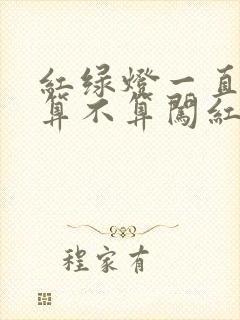 红绿燈一直
算不算闖紅
程家有